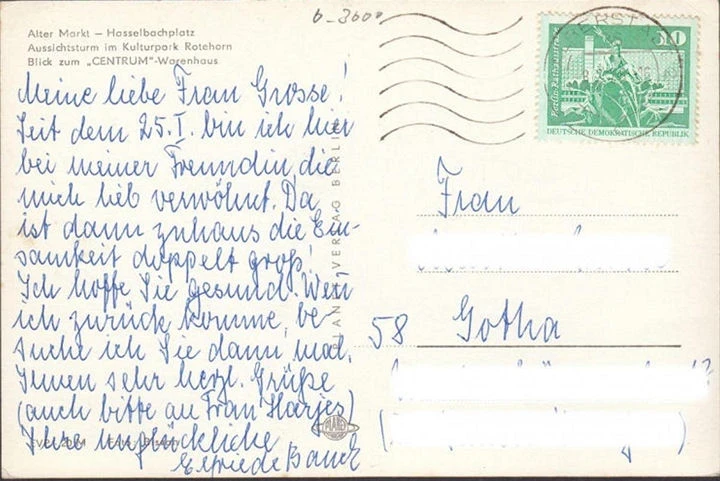 Alter Markt — Hasselbachplatz
Aussichtsturm im Kulturpark Rotehorn
Blick zum „CENTRUM"-Warenhaus
6-3600
Meine liebe Frau Grosse!
Seit dem 25.I. bin ich hier
bei meiner Freundin, die
mich lieb verwöhnt. Da
ist dann zuhaus die Ein-
samkeit doppelt groß!
Ich hoffe Sie gesund. Wenn
ich zurück komme, be-
suche ich Sie dann mal.
Ihnen sehr herzl. Grüße
(auch bitte an Frau Harjes)
Ihre unglückliche
Elfriede Banck
PLANET-VERLAG BERLIN
PLANET
10
DEUTSCHE DEMOKRATISCHE REPUBLIK
Frau
58 Gotha